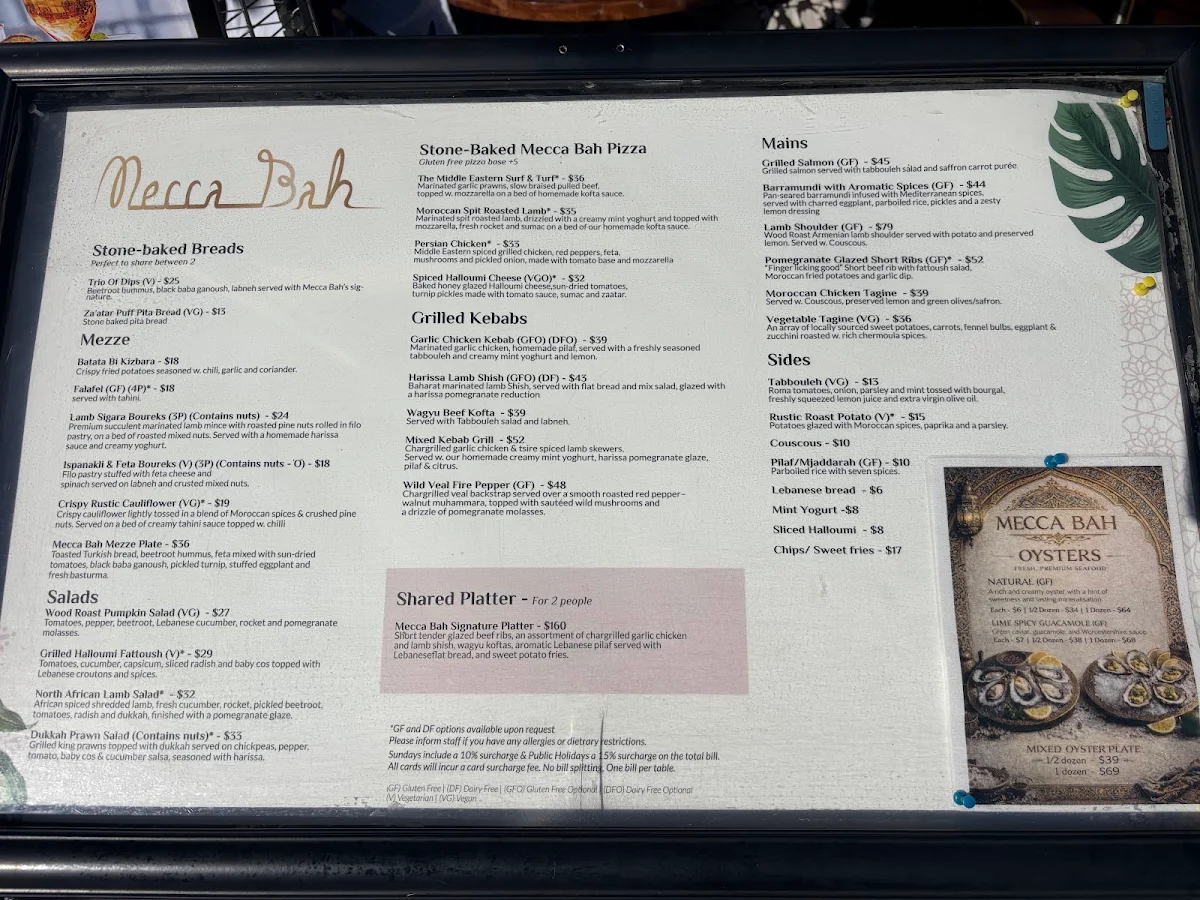 Mecca Bah
Stone-baked Breads
Perfect to share between 2
Trio Of Dips (V) - $25
Beetroot hummus, black baba ganoush, labneh served with Mecca Bah's sig-
nature.
Za'atar Puff Pita Bread (VG) - $13
Stone baked pita bread
Mezze
Batata Bi Kizbara - $18
Crispy fried potatoes seasoned w. chili, garlic and coriander.
Falafel (GF) (4P)* - $18
served with tahini.
Lamb Sigara Boureks (3P) (Contains nuts) - $24
Premium succulent marinated lamb mince with roasted pine nuts rolled in filo
pastry, on a bed of roasted mixed nuts. Served with a homemade harissa
sauce and creamy yoghurt.
Ispanakli & Feta Boureks (V) (3P) (Contains nuts - O) - $18
Filo pastry stuffed with feta cheese and
spinach served on labneh and crusted mixed nuts.
Crispy Rustic Cauliflower (VG)* - $19
Crispy cauliflower lightly tossed in a blend of Moroccan spices & crushed pine
nuts. Served on a bed of creamy tahini sauce topped w. chilli
Mecca Bah Mezze Plate - $36
Toasted Turkish bread, beetroot hummus, feta mixed with sun-dried
tomatoes, black baba ganoush, pickled turnip, stuffed eggplant and
fresh basturma.
Salads
Wood Roast Pumpkin Salad (VG) - $27
Tomatoes, pepper, beetroot, Lebanese cucumber, rocket and pomegranate
molasses.
Grilled Halloumi Fattoush (V)* - $29
Tomatoes, cucumber, capsicum, sliced radish and baby cos topped with
Lebanese croutons and spices.
North African Lamb Salad* - $32
African spiced shredded lamb, fresh cucumber, rocket, pickled beetroot,
tomatoes, radish and dukkah, finished with a pomegranate glaze.
Dukkah Prawn Salad (Contains nuts)* - $33
Grilled king prawns topped with dukkah served on chickpeas, pepper,
tomato, baby cos & cucumber salsa, seasoned with harissa.
Stone-Baked Mecca Bah Pizza
Gluten free pizza base +5
The Middle Eastern Surf & Turf* - $36
Marinated garlic prawns, slow braised pulled beef,
topped w. mozzarella on a bed of homemade kofta sauce.
Moroccan Spit Roasted Lamb* - $35
Marinated spit roasted lamb, drizzled with a creamy mint yoghurt and topped with
mozzarella, fresh rocket and sumac on a bed of our homemade kofta sauce.
Persian Chicken* - $33
Middle Eastern spiced grilled chicken, red peppers, feta,
mushrooms and pickled onion, made with tomato base and mozzarella
Spiced Halloumi Cheese (VGO)* - $32
Baked honey glazed Halloumi cheese,sun-dried tomatoes,
turnip pickles made with tomato sauce, sumac and zaatar.
Grilled Kebabs
Garlic Chicken Kebab (GFO) (DFO) - $39
Marinated garlic chicken, homemade pilaf, served with a freshly seasoned
tabbouleh and creamy mint yoghurt and lemon.
Harissa Lamb Shish (GFO) (DF) - $43
Baharat marinated lamb Shish, served with flat bread and mix salad, glazed with
a harissa pomegranate reduction
Wagyu Beef Kofta - $39
Served with Tabbouleh salad and labneh.
Mixed Kebab Grill - $52
Chargrilled garlic chicken & tsire spiced lamb skewers,
Served w. our homemade creamy mint yoghurt, harissa pomegranate glaze,
pilaf & citrus.
Wild Veal Fire Pepper (GF) - $48
Chargrilled veal backstrap served over a smooth roasted red pepper–
walnut muhammara, topped with sautéed wild mushrooms and
a drizzle of pomegranate molasses.
Shared Platter - For 2 people
Mecca Bah Signature Platter - $160
Short tender glazed beef ribs, an assortment of chargrilled garlic chicken
and lamb shish, wagyu koftas, aromatic Lebanese pilaf served with
Lebaneseflat bread, and sweet potato fries.
*GF and DF options available upon request
Please inform staff if you have any allergies or dietrary restrictions.
Sundays include a 10% surcharge & Public Holidays a 15% surcharge on the total bill.
All cards will incur a card surcharge fee. No bill splitting. One bill per table.
(GF) Gluten Free | (DF) Dairy Free | (GFO) Gluten Free Optional | (DFO) Dairy Free Optional
(V) Vegetarian | (VG) Vegan
Mains
Grilled Salmon (GF) - $45
Grilled salmon served with tabbouleh salad and saffron carrot purée.
Barramundi with Aromatic Spices (GF) - $44
Pan-seared barramundi infused with Mediterranean spices,
served with charred eggplant, parboiled rice, pickles and a zesty
lemon dressing
Lamb Shoulder (GF) - $79
Wood Roast Armenian lamb shoulder served with potato and preserved
lemon. Served w. Couscous.
Pomegranate Glazed Short Ribs (GF)* - $52
"Finger licking good" Short beef rib with fattoush salad,
Moroccan fried potatoes and garlic dip.
Moroccan Chicken Tagine - $39
Served w. Couscous, preserved lemon and green olives/saffron.
Vegetable Tagine (VG) - $36
An array of locally sourced sweet potatoes, carrots, fennel bulbs, eggplant &
zucchini roasted w. rich chermoula spices.
Sides
Tabbouleh (VG) - $13
Roma tomatoes, onion, parsley and mint tossed with bourgal,
freshly squeezed lemon juice and extra virgin olive oil.
Rustic Roast Potato (V)* - $15
Potatoes glazed with Moroccan spices, paprika and a parsley.
Couscous - $10
Pilaf/Mjaddarah (GF) - $10
Parboiled rice with seven spices.
Lebanese bread - $6
Mint Yogurt -$8
Sliced Halloumi - $8
Chips/ Sweet fries - $17
MECCA BAH
OYSTERS
FRESH, PREMIUM SEAFOOD
NATURAL (GF)
A rich and creamy oyster with a hint of
sweetness and lasting mineralisation
Each - $6 | 1/2 Dozen - $34 | 1 Dozen - $64
LIME SPICY GUACAMOLE (GF)
Green caviar, guacamole, and Worcestershire sauce
Each - $7 | 1/2 Dozen - $38 | 1 Dozen - $68
MIXED OYSTER PLATE
1/2 dozen - $39
1 dozen - $69